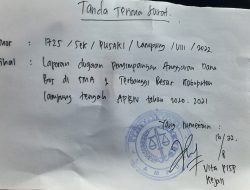 Tanda Terima Surat.
Nomor : 1725 / SEK / PUSARI / Lampung / VIII / 2022
Hal : Laporan dugaan penyimpangan Anggaran Dana
Bos di SMA 1 Terbanggi Besar Kabupaten
Lampung tengah APBN tahun 2020-2021
Yang menerima
Vita PTSP
Kejari